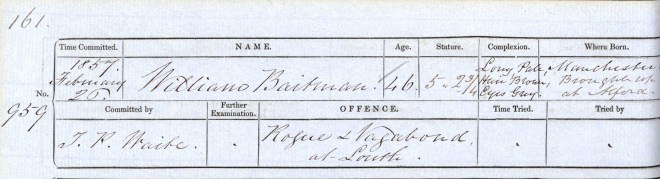 161.
Time Committed. NAME. Age. Stature. Complexion. Where Born.
1857 February 26. William Baitman. 46. 5" 2 3/4 Long Pale, Hair Brown, Eyes Grey. Manchester Brought up at Alford.
No. 959
Committed by Further Examination. OFFENCE. Time Tried. Tried by
T. R. Waite. Rogue & Vagabond at Louth.